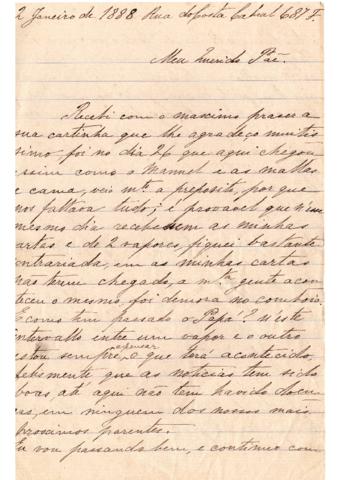 2 Janeiro de 1888 Rua do Costa Cabral 687 F.
Meu Querido Pae.
Recebi com o maximo praser a
sua cartinha que lhe agradeço muitis
simo foi no dia 26 que aqui chegou
assim como o Manuel e as mallas
e cama, veis mto a preposito, por que
nos faltava tudo; é provavel que n'esse
mesmo dia recebessem as minhas
cartas e de 2 vapores, fiquei bastante
contrariada, em as minhas cartas
nao terem chegado, a mta gente acon
teceu o mesmo, foi demora no comboio.
E como tem passado o Papá? N'este
intervallo entre um vapor e o outro
estou sempre, a pensar o que terá acontecido,
felismente que as noticias tem sido
boas, até aqui não tem havido doen
ças, em ninguem dos nossos mais
proximos parentes.
Eu vou passando bem, e continuo com